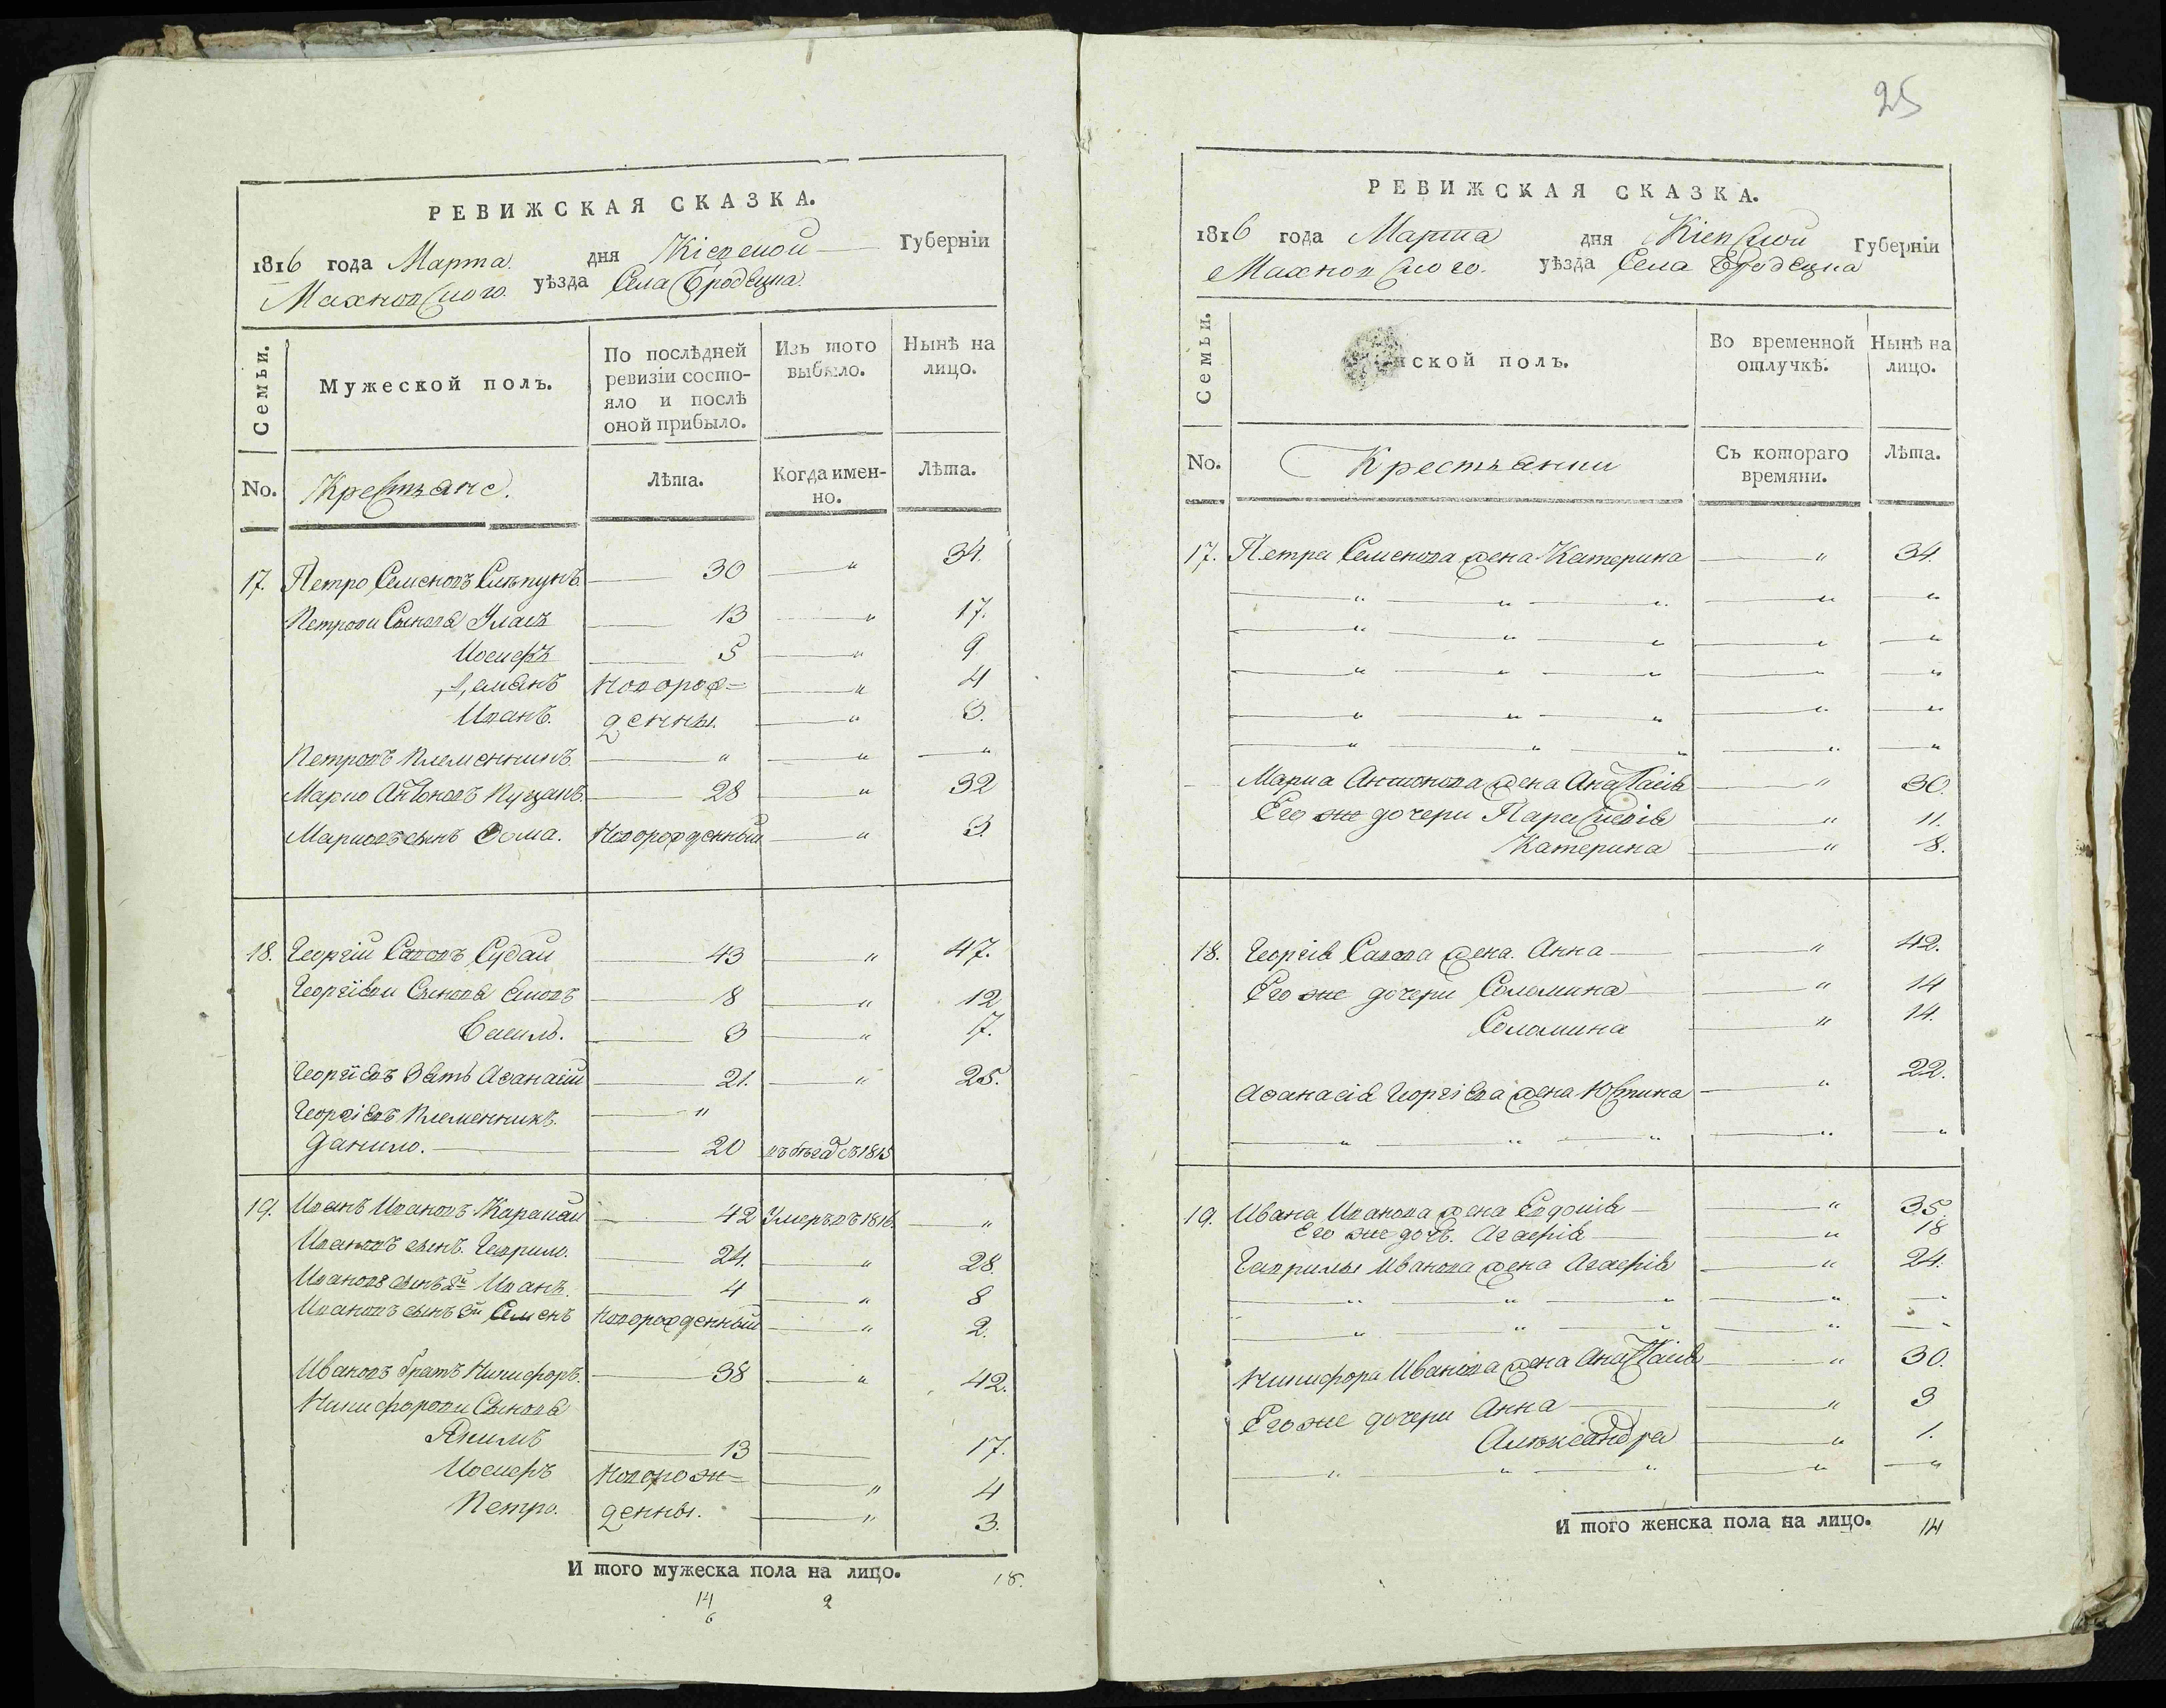 РЕВИЖСКАЯ СКАЗКА.
1816 года Марта дня Кіевской Губерніи
Махновского уѣзда Села Бродецка
Семьи.
Мужеской полъ.
По послѣдней ревизіи состо-
яло и послѣ
оной прибыло.
Изъ того выбыло.
Нынѣ на лицо.
No. Крестьяне.
Лѣта.
Когда имен-
но.
Лѣта.
17. Петро Семеновъ 30 " 34.
Петрови Сынова Уласъ 13 " 17.
Иосифъ 5 " 9
Демянъ Новорож= " 4
Иванъ. денны. " 3.
Петровъ Племенникъ " " "
Марко Антоновъ Куцанъ 28 " 32
Марковъ сынъ Ѳома. Новорожденный " 3.
18. Георгій Савовъ Судай 43 " 47.
Георгіеви Сынова 8 " 12
Василь. 3 " 7.
Георгіевъ Зять Аѳанасій 21. " 25.
Георгіевъ Племенникъ. "
Данило. 20 въ бѣгахъ съ 1815
19. Иванъ Ивановъ 42 Умеръ въ 1816. "
Ивановъ сынъ. Гаврило. 24. " 28.
Ивановъ сынъ 2й Иванъ. 4 " 8
Ивановъ сынъ 3й Семенъ Новорожденный " 2.
Ивановъ братъ Никифоръ. 38 " 42.
Никифорови Сынова
Якимъ 13 17.
Иосифъ Новорож= " 4
Петро. денны. " 3.
И того мужеска пола на лицо. 18.
14 2
6
25
РЕВИЖСКАЯ СКАЗКА.
1816 года Марта дня Кіевской Губерніи
Махновского уѣзда Села Бродецка
Семьи.
нской полъ.
Во временной отлучкѣ.
Нынѣ на лицо.
No. Крестьянки
Съ котораго времяни.
Лѣта.
17. Петра Семенова жена Катерина " 34.
" " " " "
" " " " "
" " " " "
" " " " "
" " " " "
Марка Антонова жена Анастасія " 30.
Его же дочери Параскевія " 11.
Катерина " 8.
18. Георгія Савова жена Анна " 42.
Его же дочери Соломина " 14
Соломина " 14.
Аѳанасія Георгіева жена Юстина " 22.
" " " " "
19. Ивана Иванова жена Евдокія " 35.
Его же дочь. Агафія " 18
Гаврилы Иванова жена Агафія " 24.
" " " " "
" " " " "
Никифора Иванова жена Анастасія " 30.
Его же дочери Анна " 3
Александра " 1.
" " " " "
И того женска пола на лицо. 14